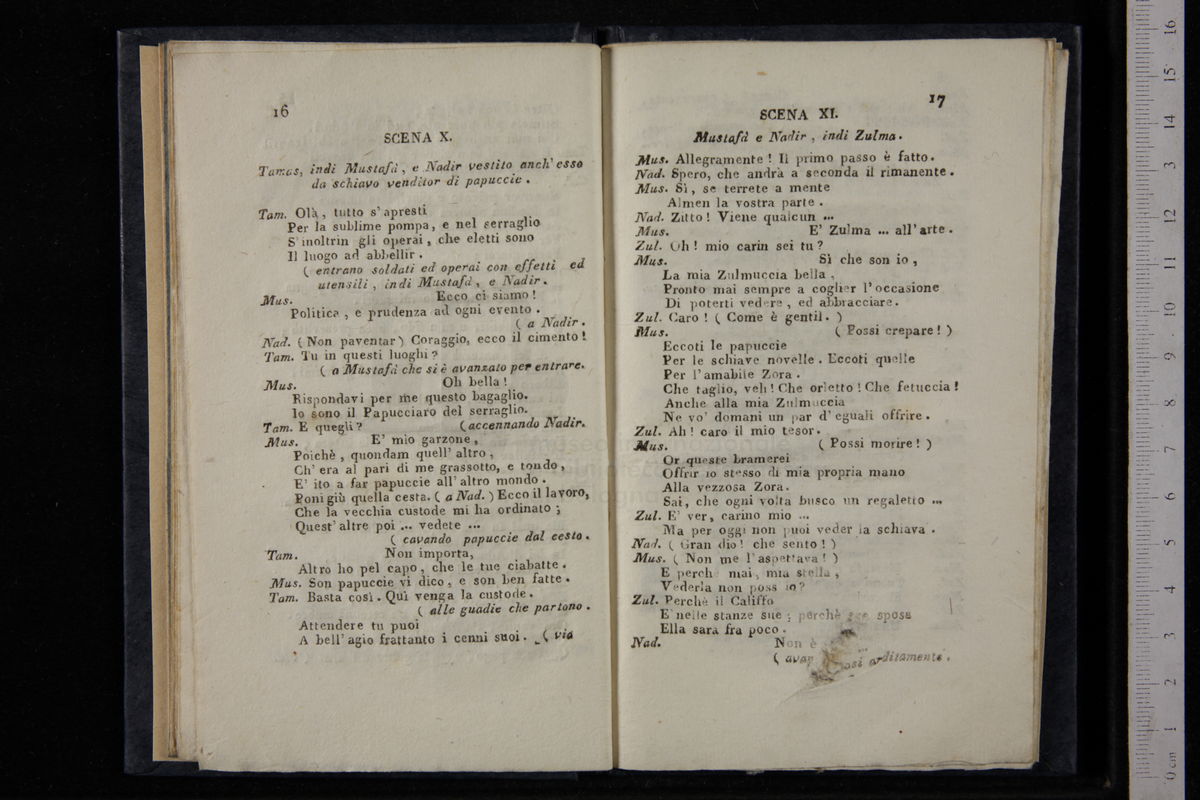 16
SCENA X.
Tamas, indi Mustafà, e Nadir vestito anch' esso
da schiavo venditor di papuccie.
Tam. Olà, tutto s' apresti
Per la sublime pompa, e nel serraglio
S' inoltrin gli operai, che eletti sono
Il luogo ad abbellir.
( entrano soldati ed operai con effetti ed
utensili, indi Mustafà, e Nadir.
Mus. Ecco ci siamo!
Politica, e prudenza ad ogni evento.
( a Nadir.
Nad. ( Non paventar ) Coraggio, ecco il cimento!
Tam. Tu in questi luoghi?
( a Mustafà che si è avanzato per entrare.
Mus. Oh bella!
Rispondavi per me questo bagaglio.
Io sono il Papucciaro del serraglio.
Tam. E quegli? (accennando Nadir.
Mus. E' mio garzone,
Poichè, quondam quell' altro,
Ch' era al pari di me grassotto, e tondo,
E' ito a far papuccie all' altro mondo.
Poni giù quella cesta. ( a Nad. ) Ecco il lavoro,
Che la vecchia custode mi ha ordinato;
Quest' altre poi ... vedete ...
( cavando papuccie dal cesto.
Tam. Non importa,
Altro ho pel capo, che le tue ciabatte.
Mus. Son papuccie vi dico, e son ben fatte.
Tam. Basta così. Quì venga la custode.
( alle guadie che partono.
Attendere tu puoi
A bell' agio frattanto i cenni suoi. ( via
17
SCENA XI.
Mustafà e Nadir, indi Zulma.
Mus. Allegramente! Il primo passo è fatto.
Nad. Spero, che andrà a seconda il rimanente.
Mus. Sì, se terrete a mente
Almen la vostra parte.
Nad. Zitto! Viene qualcun ...
Mus. E' Zulma ... all' arte.
Zul. Oh! mio carin sei tu?
Mus. Sì che son io,
La mia Zulmuccia bella,
Pronto mai sempre a coglier l' occasione
Di poterti vedere, ed abbracciare.
Zul. Caro! ( Come è gentil. )
Mus. ( Possi crepare! )
Eccoti le papuccie
Per le schiave novelle. Eccoti quelle
Per l' amabile Zora.
Che taglio, veh! Che orletto! Che fetuccia!
Anche alla mia Zulmuccia
Ne vo' domani un par d' eguali offrire.
Zul. Ah! caro il mio tesor.
Mus. ( Possi morire! )
Or queste bramerei
Offrir io stesso di mia propria mano
Alla vezzosa Zora.
Sai, che ogni volta busco un regaletto ...
Zul. E' ver, carino mio ...
Ma per oggi non puoi veder la schiava.
Nad. ( Gran dio! che sento! )
Mus. ( Non me l' aspettava! )
E perchè mai, mia stella,
Vederla non poss io?
Zul. Perchè il Califfo
E' nelle stanze sue; perchè sposa
Ella sarà fra poco.
Nad. Non è ...
( arditamente.